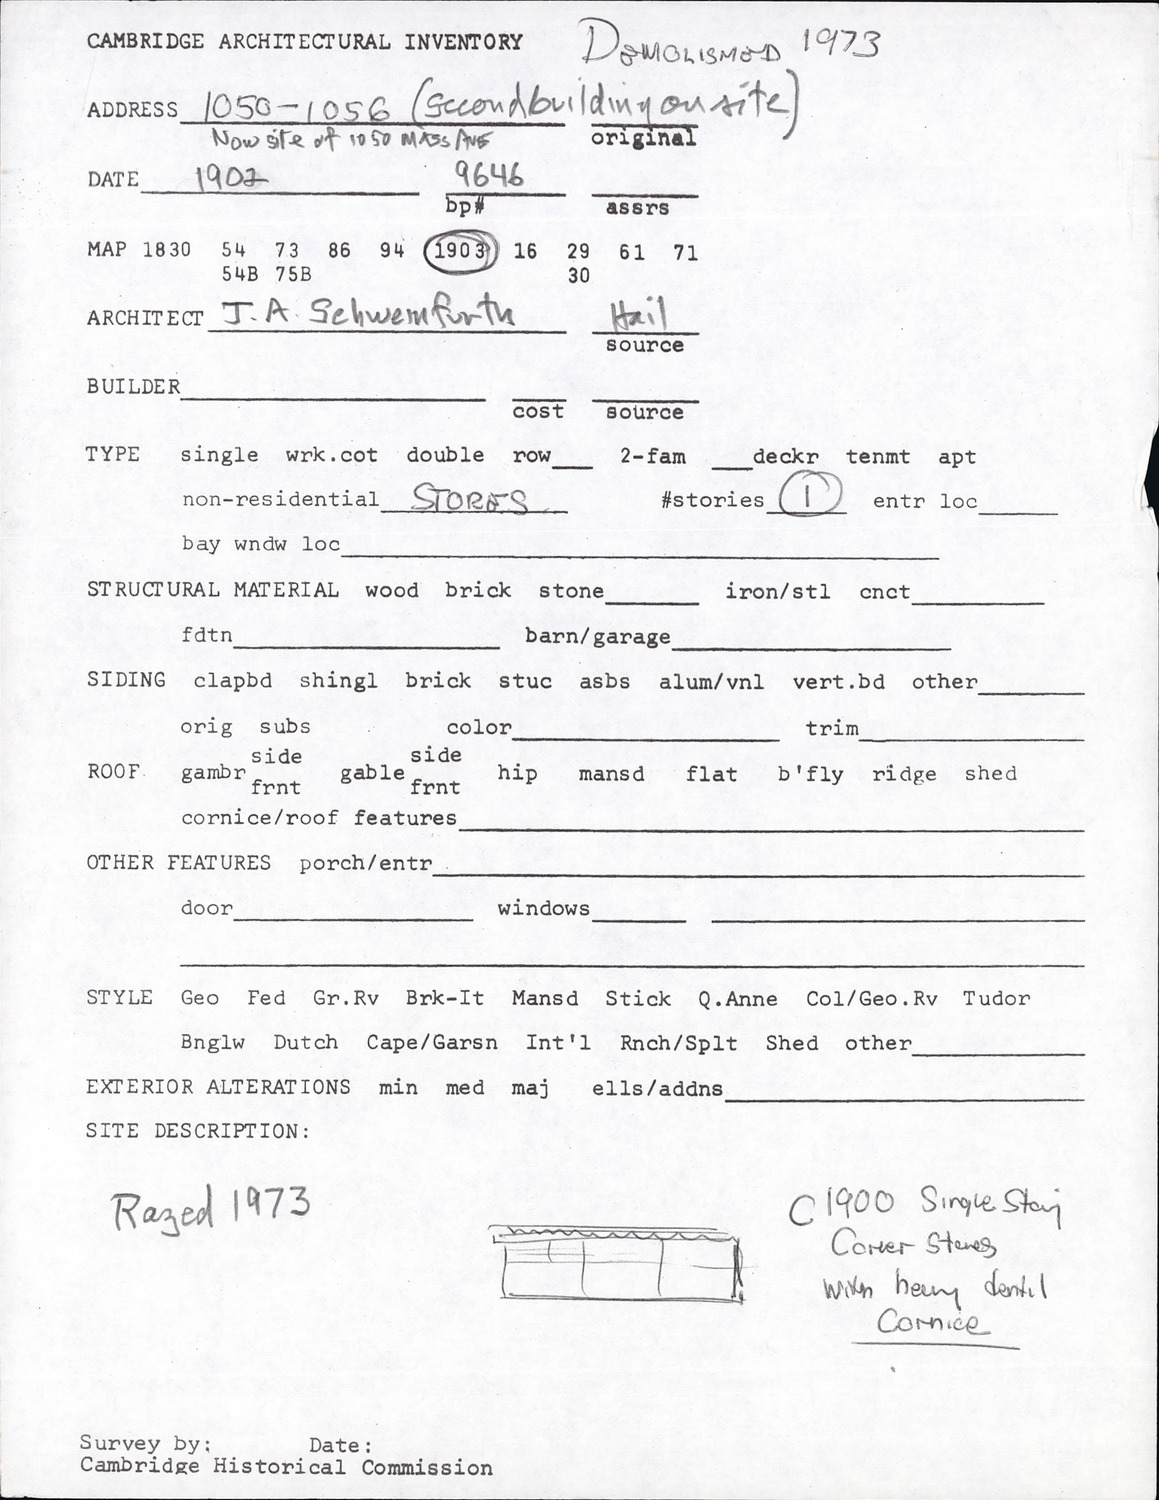 CAMBRIDGE ARCHITECTURAL INVENTORY DEMOLISHED 1973
ADDRESS 1050-1056 (second building on site)
Now site of 1050 MASS AVE original
DATE 1902 9646
bp# assrs
MAP 1830 54 73 86 94 1903 16 29 61 71
54B 75B 30
ARCHITECT J.A. Schweinfurth Hail
source
BUILDER
cost source
TYPE single wrk.cot double row___ 2-fam ___deckr tenmt apt
non-residential STORES #stories 1 entr loc
bay wndw loc
STRUCTURAL MATERIAL wood brick stone iron/stl cnct
fdtn barn/garage
SIDING clapbd shingl brick stuc asbs alum/vnl vert.bd other
orig subs color trim
side side
ROOF gambr gable hip mansd flat b'fly ridge shed
frnt frnt
cornice/roof features
OTHER FEATURES porch/entr
door windows
STYLE Geo Fed Gr.Rv Brk-It Mansd Stick Q.Anne Col/Geo.Rv Tudor
Bnglw Dutch Cape/Garsn Int'l Rnch/Splt Shed other
EXTERIOR ALTERATIONS min med maj ells/addns
SITE DESCRIPTION:
Razed 1973
C 1900 Single Story
Corner Stores
with heavy dentil
Cornice
Survey by: Date:
Cambridge Historical Commission